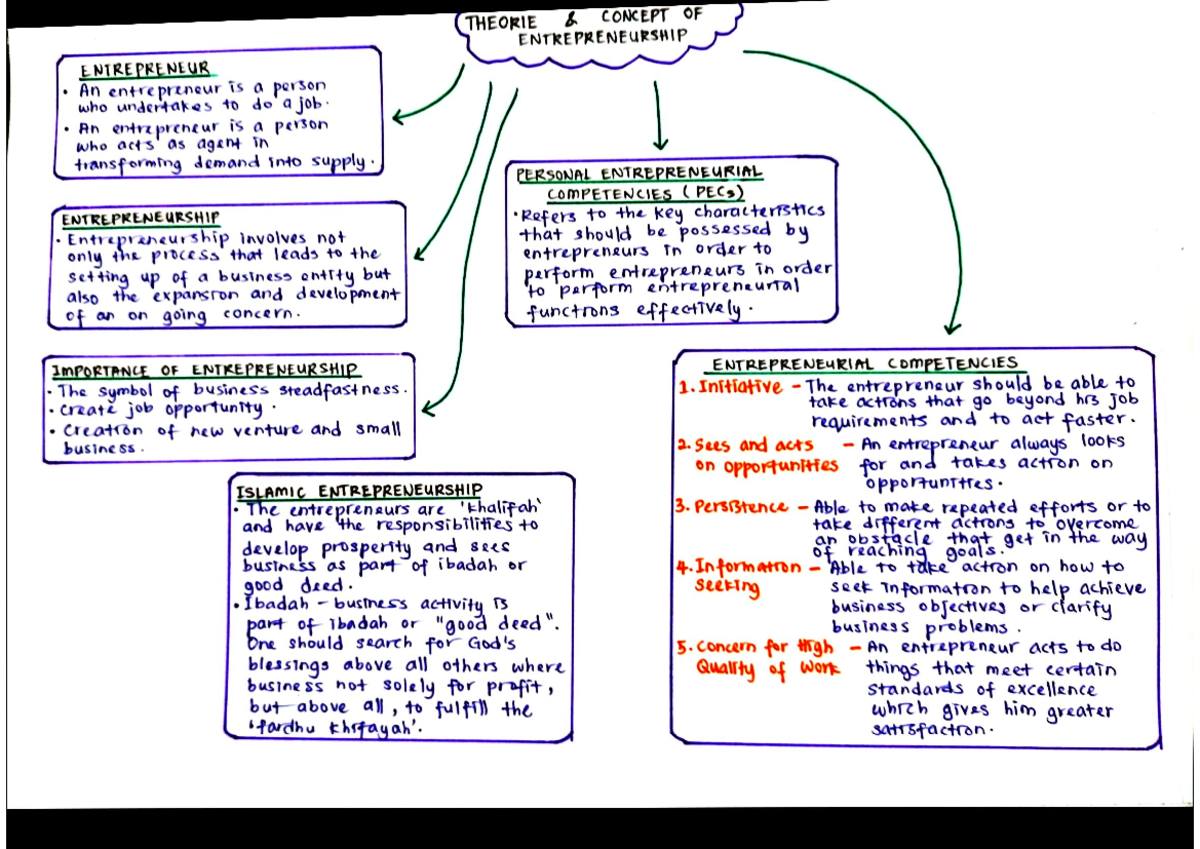 THEORIE & CONCEPT OF
ENTREPRENEURSHIP
ENTREPRENEUR
• An entrepreneur is a person
who undertakes to do a job.
• An entrepreneur is a person
who acts as agent in
transforming demand into supply.
ENTREPRENEURSHIP
• Entrepreneurship involves not
only the process that leads to the
setting up of a business entity but
also the expansion and development
of an on going concern.
IMPORTANCE OF ENTREPRENEURSHIP
• The symbol of business steadfastness.
• Create job opportunity.
• Creation of new venture and small
business.
ISLAMIC ENTREPRENEURSHIP
• The entrepreneurs are 'khalifah'
and have the responsibilities to
develop prosperity and sees
business as part of ibadah or
good deed.
• Ibadah - business activity is
part of ibadah or "good deed".
One should search for God's
blessings above all others where
business not solely for profit,
but above all, to fulfill the
'fardhu khifayah'.
PERSONAL ENTREPRENEURIAL
COMPETENCIES (PECs)
• Refers to the key characteristics
that should be possessed by
entrepreneurs in order to
perform entrepreneurs in order
to perform entrepreneurial
functions effectively.
ENTREPRENEURIAL COMPETENCIES
1. Initiative - The entrepreneur should be able to
take actions that go beyond his job
requirements and to act faster.
2. Sees and acts - An entrepreneur always looks
on opportunities for and takes action on
opportunities.
3. Persistence - Able to make repeated efforts or to
take different actions to overcome
an obstacle that get in the way
of reaching goals.
4. Information - Able to take action on how to
seeking seek information to help achieve
business objectives or clarify
business problems.
5. Concern for High - An entrepreneur acts to do
Quality of Work things that meet certain
standards of excellence
which gives him greater
satisfaction.